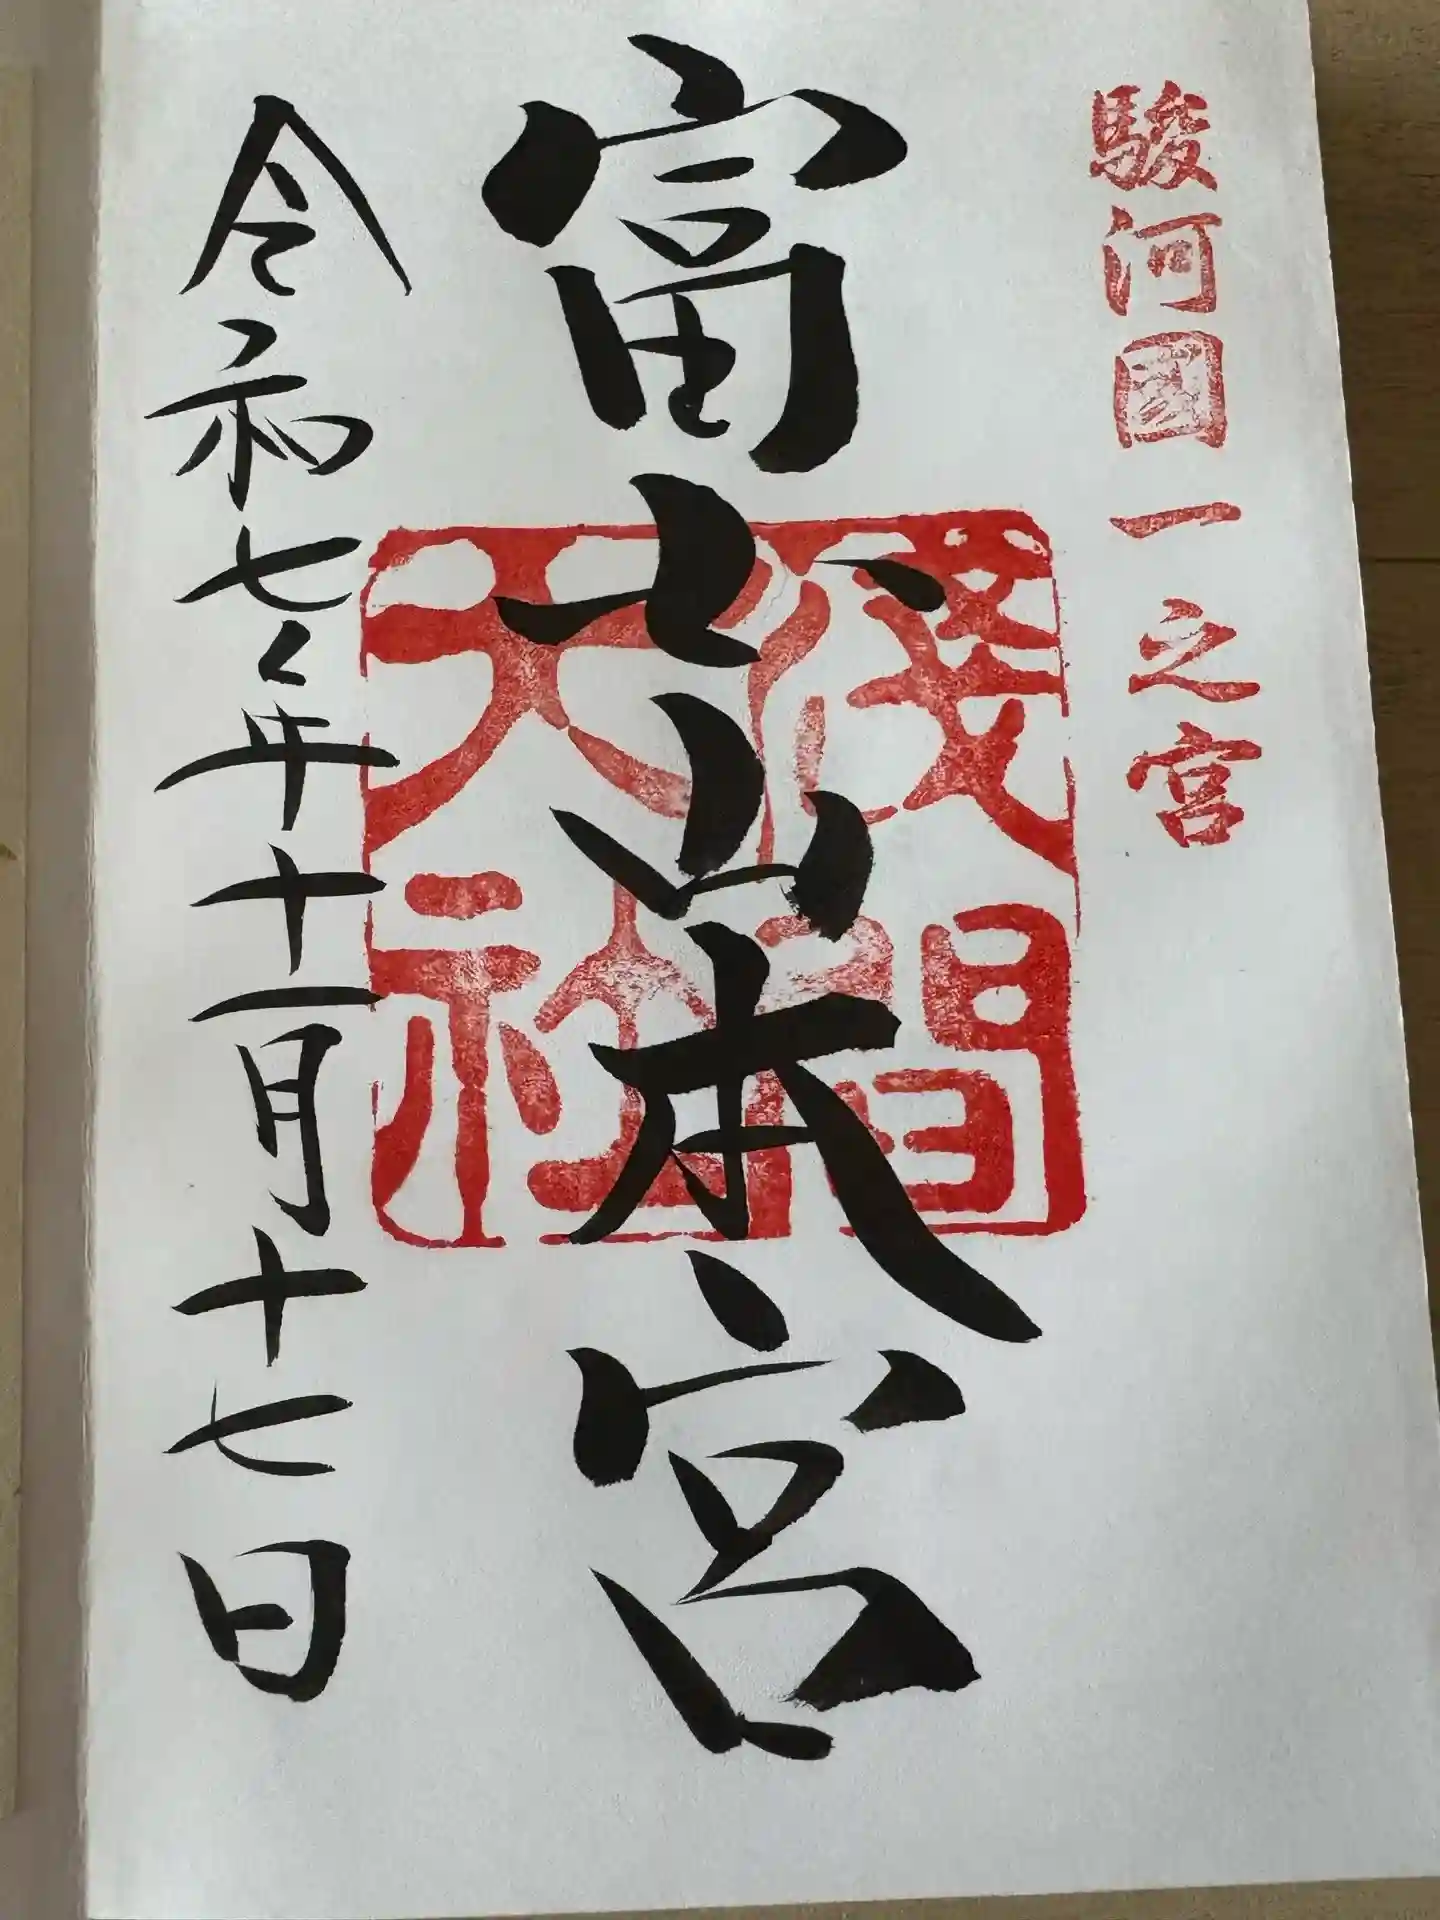 駿河國一之宮
富士山本宮
淺間大社
令和七年十一月十七日